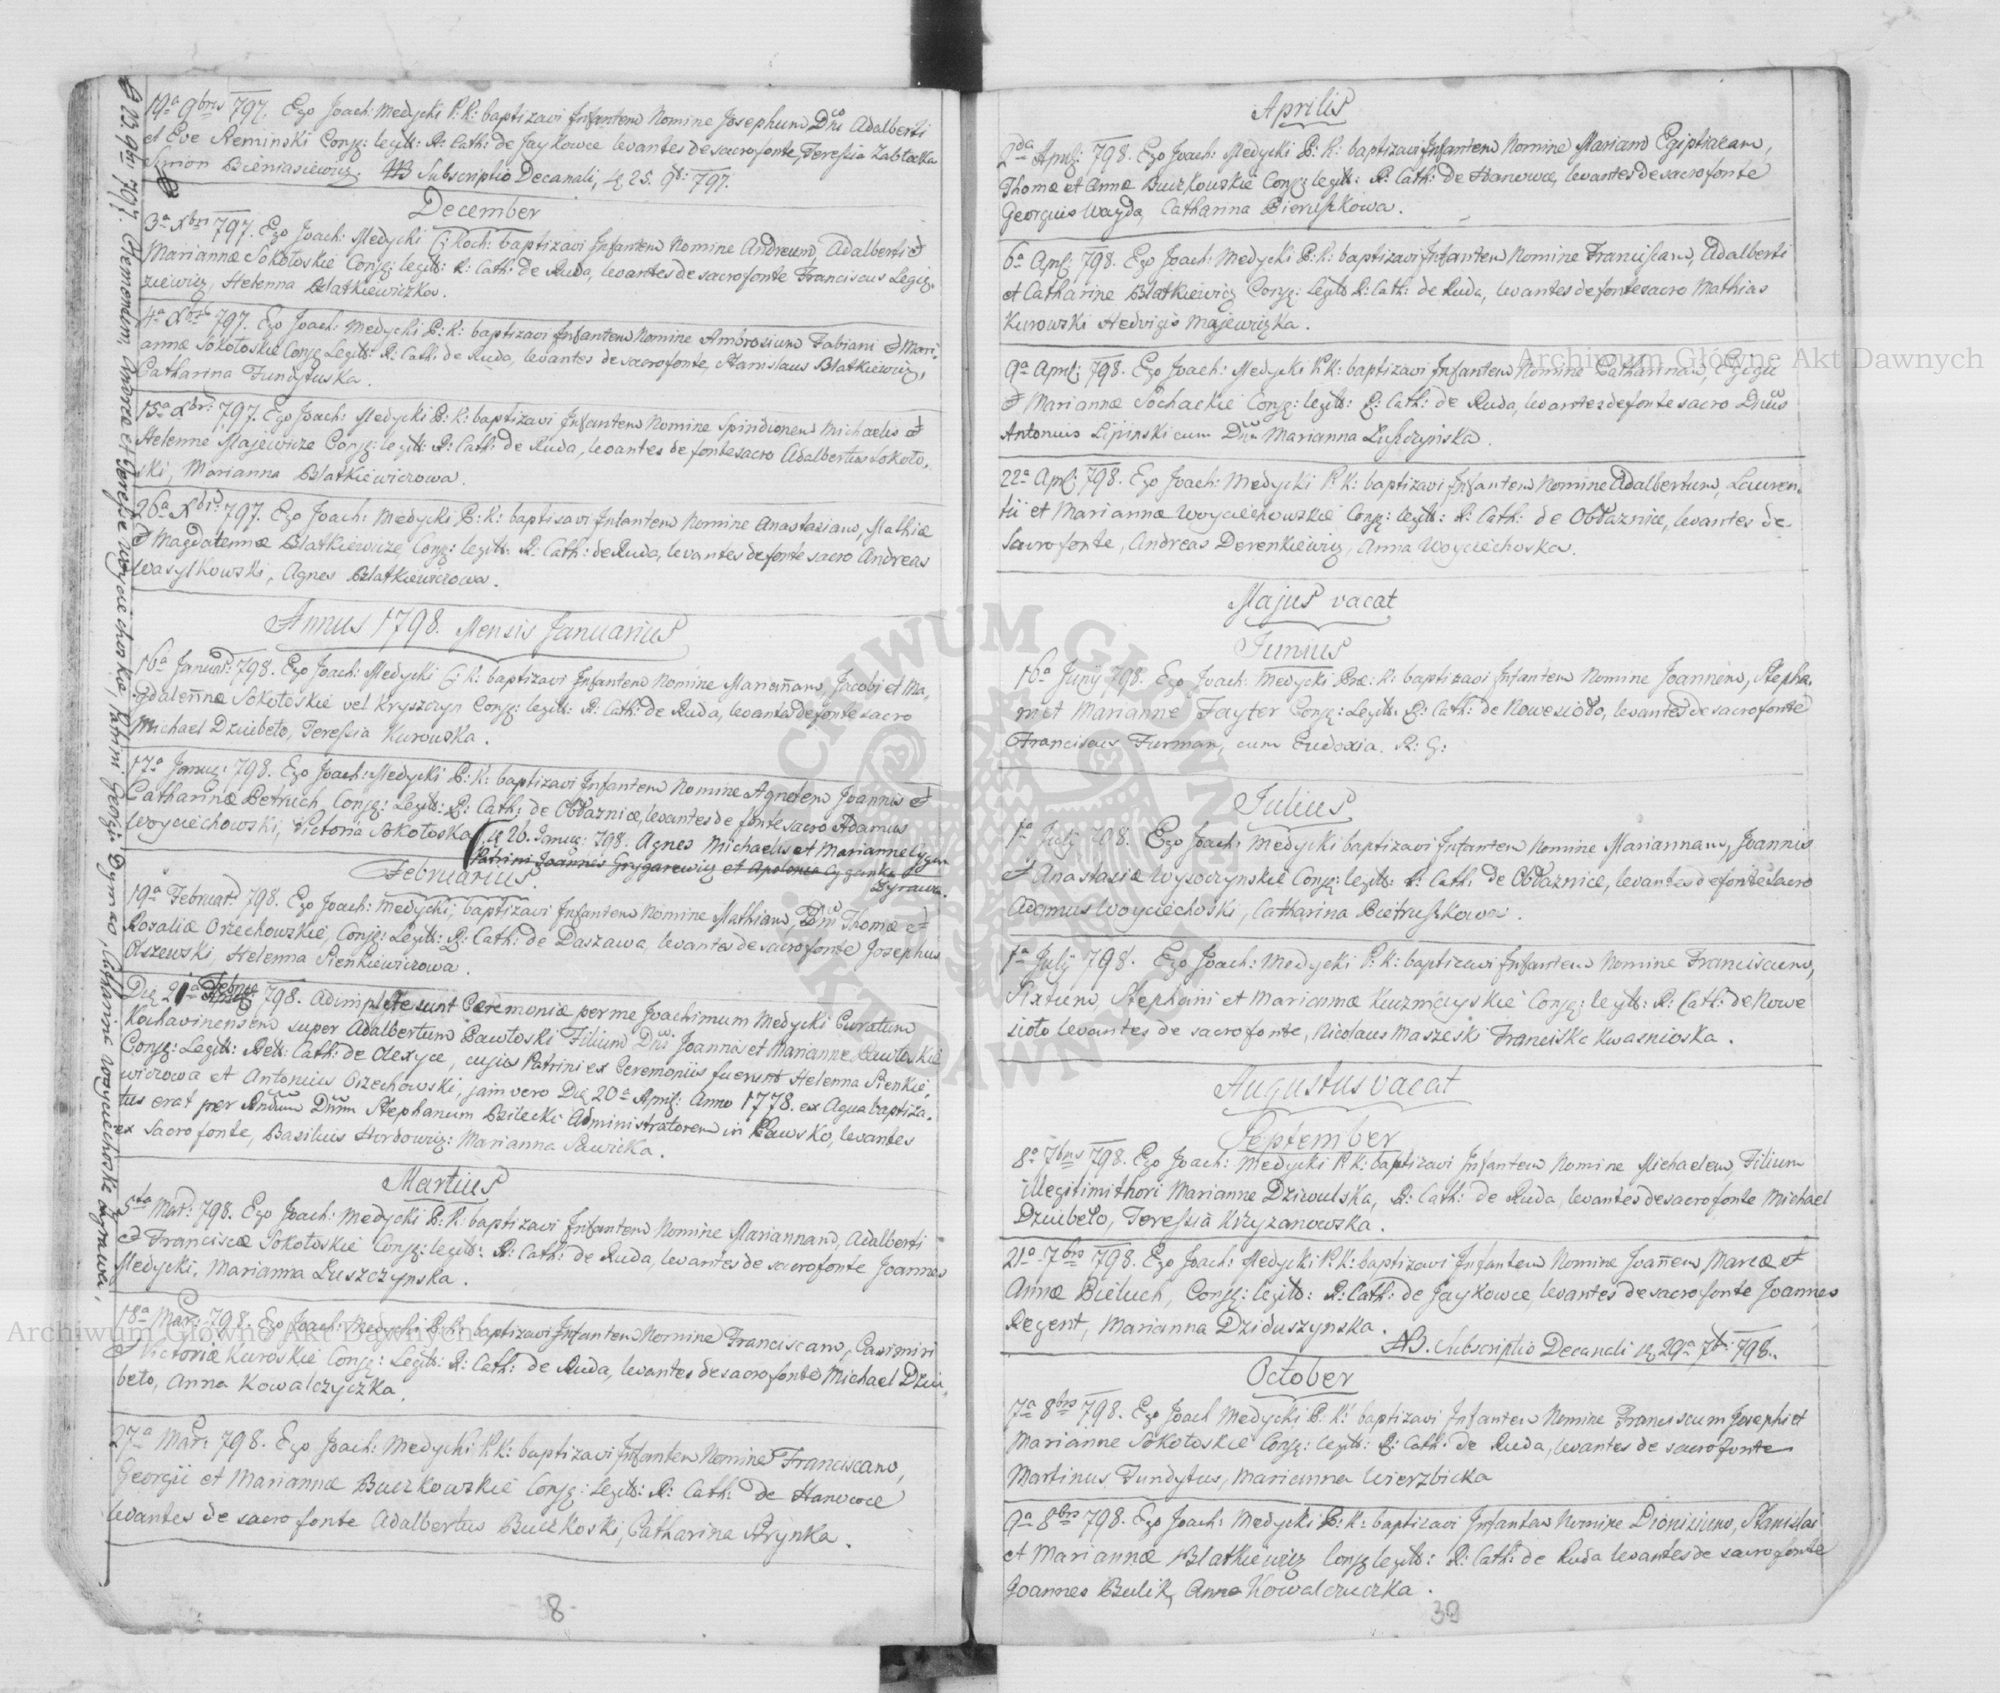 19a 9bris 797. Ego Joach: Medycki P: K: baptizavi Infantem Nomine Josephum Dni Adalberti
et Eve Reminski Conjg: legit: R: Cath: de Jaykowce levantes de sacro fonte, Teressia Zabłacka
Simon Bieniasiewicz. NB Subscriptio Decanali, 25. 9br: 797.
23 9br 797. Clementem, Andreæ et Teresiæ Woyciechoska, Patrini Georgii Dyrnao, Catharina Woyciechoska Zyrawa,
December
3a Xbris 797. Ego Joach: Medycki C: Koch: baptizavi Infantem Nomine Andream, Adalberti et
Mariannæ Sokołoskie Conjg: legit: R: Cath: de Ruda, levantes de sacro fonte Franciscus Legie,
ziewicz, Helenna Blatkiewiczka.
4a Xbris 797. Ego Joach: Medycki P: K: baptizavi Infantem Nomine Ambrosium Fabiani et Mari,
annæ Sokołoskie Conjg Legit: R: Cath: de Ruda, levantes de sacro fonte, Stanislaus Blatkiewicz,
Catharina Fundytuska.
15a Xbr: 797. Ego Joach: Medycki P: K: baptizavi Infantem Nomine Spiridionem Michaelis et
Helenne Majewicze Conjg: legit: R: Cath: de Ruda, levantes de fonte sacro Adalbertus Sokoło,
ski, Marianna Blatkiewiczowa.
26a Xbris 797. Ego Joach: Medycki P: K: baptisavi Infantem Nomine Anastasiam, Mathiæ
et Magdalennæ Blatkiewicze Conjg: legit: R: Cath: de Ruda, levantes de fonte sacro Andreas
Wasylkowski, Agnes Blatkiewiczowa.
Annus 1798. Mensis Januarius
16a Januar: 798. Ego Joach: Medycki C: K: baptizavi Infantem Nomine Mariannam, Jacobi et Ma,
gdalennæ Sokołoskie vel Kryszczyn Conjg: legit: R: Cath: de Ruda, levantes de fonte sacro
Michael Dziubeto, Teressia Kurowska.
17a Januar: 798. Ego Joach: Medycki P: K: baptizavi Infantem Nomine Agnetem Joannis et
Catharinæ Petruch Conjg: Legit: R: Cath: de Obłaznice, levantes de fonte sacro Adamus
Woyciechowski, Victoria Sokołoska. 26. Januar: 798. Agnes Michaelis et Marianne Cygan
Patrini Joannes Grygarewicz et Apolonia Cyganka
Zyrawa.
Februarius.
19a Februar: 798. Ego Joach: Medycki; baptizavi Infantem Nomine Mathiam, Dni Thomæ et
Rosaliæ Orzechowskie Conjg: Legit: R: Cath: de Daszawa, levantes de sacro fonte Josephus
Olszewski, Helenna Sienkiewiczowa.
Die 21a Februar 798. adimpletæ sunt Ceremoniæ per me Joachimum Medycki Curatum
Kochavinensem super Adalbertum Pawłoski Filium Dni Joannis et Marianne Pawłoskie
Conjg: Legit: Rit: Cath: de Olexyce, cujus Patrini ex Ceremoniis fuerunt Helenna Sienkie,
wiczowa et Antonius Orzechowski, jam vero Die 20a Apris: Anno 1778. ex Aqua baptiza,
tus erat per Rndum Dnum Stephanum Bzilecki Administratorem in Rawsko, levantes
ex sacro fonte, Basilius Hordowicz: Marianna Sawicka.
Martius
5ta Mar: 798. Ego Joach: Medycki P: K: baptizavi Infantem Nomine Mariannam, Adalberti
et Franciscæ Sokołoskie Conjg: legit: R: Cath: de Ruda, levantes de sacro fonte Joannes
Medycki, Marianna Łuszczynska.
18a Mar: 798. Ego Joach: Medycki P: K: baptizavi Infantem Nomine Franciscam, Casimiri
et Victoriæ Kuroskie Conjg: Legit: R: Cath: de Ruda, levantes de sacro fonte Michael Dziu,
beto, Anna Kowalczyczka.
27a Mar: 798. Ego Joach: Medycki P: K: baptizavi Infantem Nomine Franciscam,
Georgii et Mariannæ Buczkowskie Conjg: Legit: R: Cath: de Hanowce
levantes de sacro fonte Adalbertus Buczkoski, Catharina Skrynka.
8
Aprilis
2da Apris: 798. Ego Joach: Medycki P: K: baptizavi Infantem Nomine Mariam Egiptiacam,
Thomæ et Annæ Buczkowskie Conjg legit: R: Cath: de Hanowce, levantes de sacro fonte
Georgius Wayda, Catharina Pieruszkowa.
6a Apris: 798. Ego Joach: Medycki P: K: baptizavi Infantem Nomine Franciscam, Adalberti
et Catharine Blatkiewicz Conjg: Legit R: Cath: de Ruda, levantes de fonte sacro Mathias
Kurowski Hedvigis Majewiczka.
9a Apris: 798. Ego Joach: Medycki P: K: baptizavi Infantem Nomine Catharinam, Egigii
et Mariannæ Sochackie Conjg: legit: R: Cath: de Ruda, levantes de fonte sacro Dnus
Antonius Lipinski cum Dna Marianna Łuszczynska.
22a Apris: 798. Ego Joach: Medycki P: K: baptizavi Infantem Nomine Adalbertum, Lauren,
tii et Mariannæ Woyciechowskie Conjg: legit: R: Cath: de Obłaznice, levantes de
Sacro fonte, Andreas Derenkiewicz, Anna Woyciechoska.
Majus vacat
Junius
16a Junij 798. Ego Joach: Medycki Præ: K: baptizavi Infantem Nomine Joannem, Stepha,
ni et Marianne Fayter Conjg: Legit: R: Cath: de Nowesioło, levantes de sacro fonte
Franciscus Furman, cum Eudoxia. R: G:
Julius
1a July 798. Ego Joach: Medycki baptizavi Infantem Nomine Mariannam, Joannis
et Anastasiæ Wysoczynskie Conjg: legit: R: Cath: de Obłaznice, levantes de fonte sacro
Adamus Woyciechoski, Catharina Pietruszkowa.
1a July 798. Ego Joach: Medycki P: K: baptizavi Infantem Nomine Franciscum,
Sixtum Stephani et Mariannæ Kuzniczyskie Conjg: legit: R: Cath: de Nowe
sioło levantes de sacro fonte, Nicolaus Maszeski Franciska Kwasnioska.
Augustus vacat
September
8a 7bris 798. Ego Joach: Medycki P: K: baptizavi Infantem Nomine Michaelem, Filium
illegitimi thori Marianne Dziwulska, R: Cath: de Ruda, levantes de sacro fonte Michael
Dziubeto, Teressia Krzyzanowska.
21a 7bris 798. Ego Joach: Medycki P: K: baptizavi Infantem Nomine Joannem Marcæ et
Annæ Bieluch, Conjg: legit: R: Cath: de Jaykowce, levantes de sacro fonte Joannes
Regent, Marianna Dziduszynska.
NB. Subscriptio Decanali 29a 7br: 798.
October
7a 8bris 798. Ego Joach Medycki P: K: baptizavi Infantem Nomine Franciscum Josephi et
Marianne Sokołoskie Conjg: legit: R: Cath: de Ruda, levantes de sacro fonte
Martinus Fundytus, Marianna Wierzbicka
9a 8bris 798. Ego Joach: Medycki P: K: baptizavi Infantem Nomine Dionizium, Stanislai
et Mariannæ Blatkiewicz Conjg legit: R: Cath: de Ruda levantes de sacro fonte
Joannes Bulik, Anna Kowalczuczka.
39
Archiwum Główne Akt Dawnych
Archiwum Główne Akt Dawnych
ARCHIWUM GŁÓWNE AKT DAWNYCH